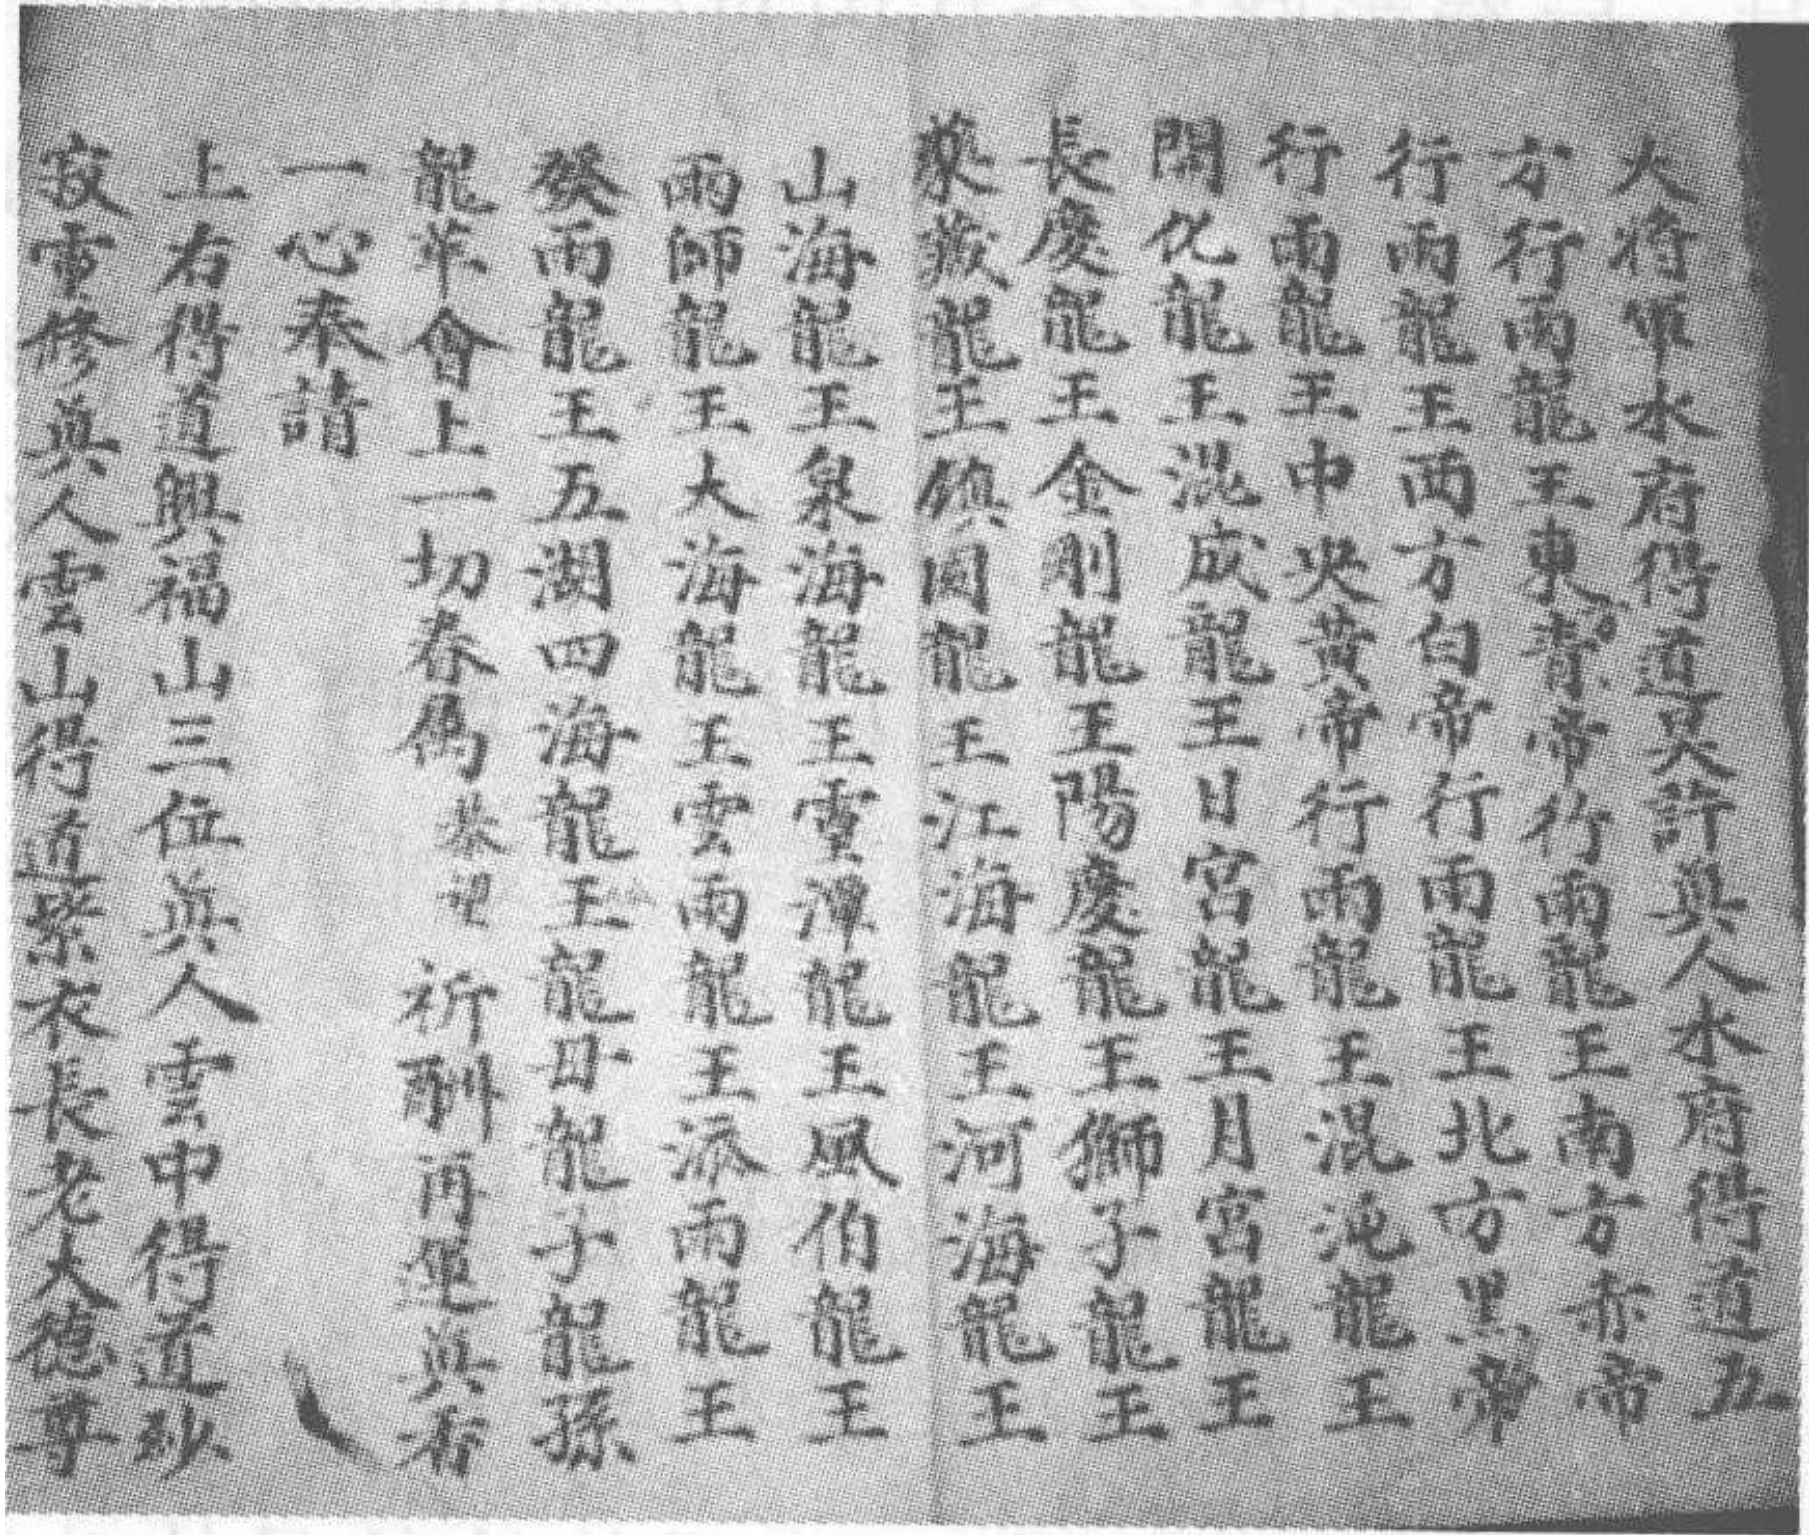 大將軍水府得道吴許真人水府得道五
方行雨龍王東青帝行雨龍王南方赤帝
行雨龍王西方白帝行雨龍王北方黑帝
行雨龍王中央黃帝行雨龍王混沌龍王
開化龍王混成龍王日宮龍王月宮龍王
長慶龍王金剛龍王陽慶龍王獅子龍王
藏龍王鎮國龍王江海龍王河海龍王
山海龍王泉海龍王雷潭龍王風伯龍王
雨師龍王大海龍王雲雨龍王派雨龍王
發雨龍王五湖四海龍王龍母龍子龍孫
龍华會上一切春屬恭望祈酬再運真香
一心奉請
上右得道興福山三位真人雲中得道妙
寂修真人雲山得道紫衣長老大德尊